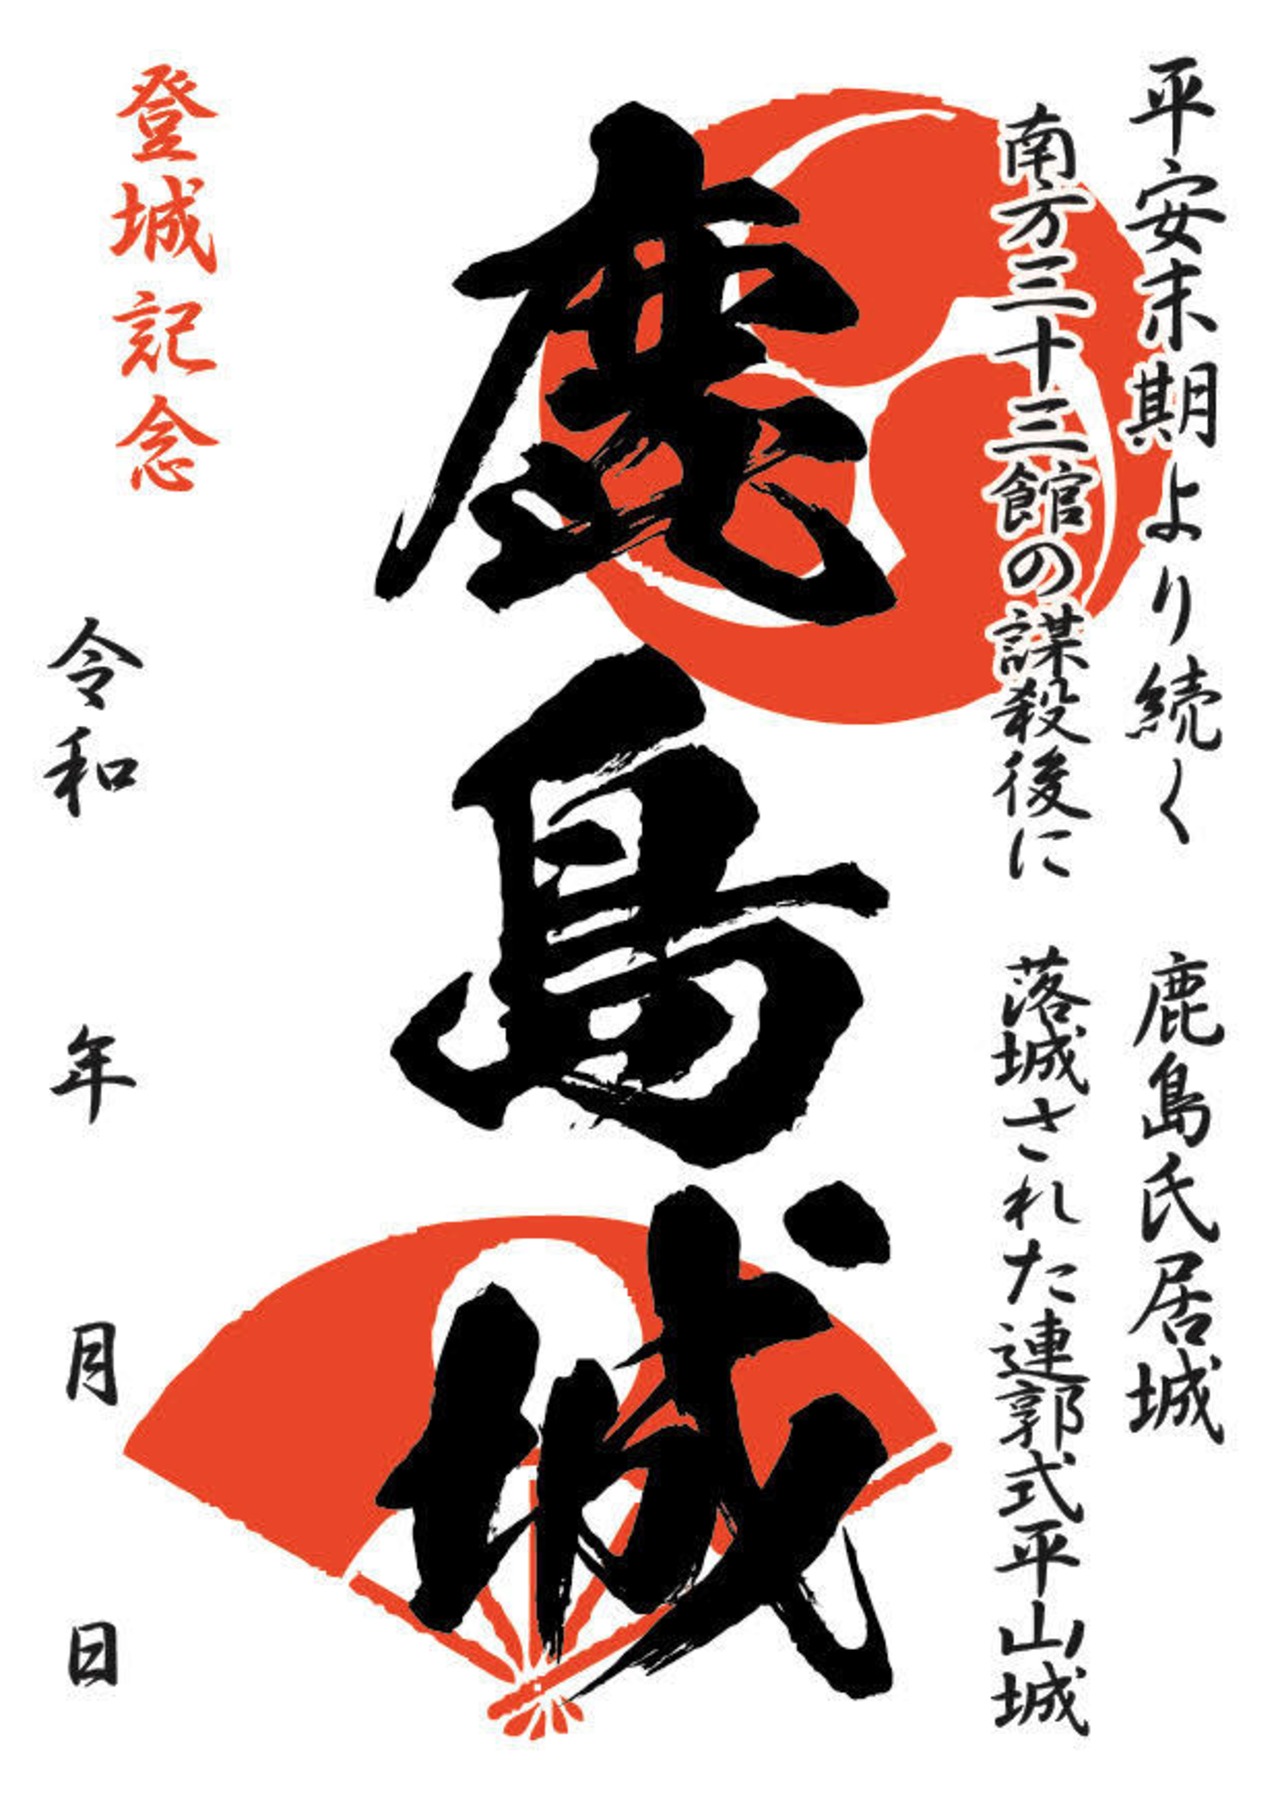 平安末期より続く　鹿島氏居城
南方三十三館の謀殺後に　落城された連郭式平山城
鹿島城
登城記念
令和　年　月　日